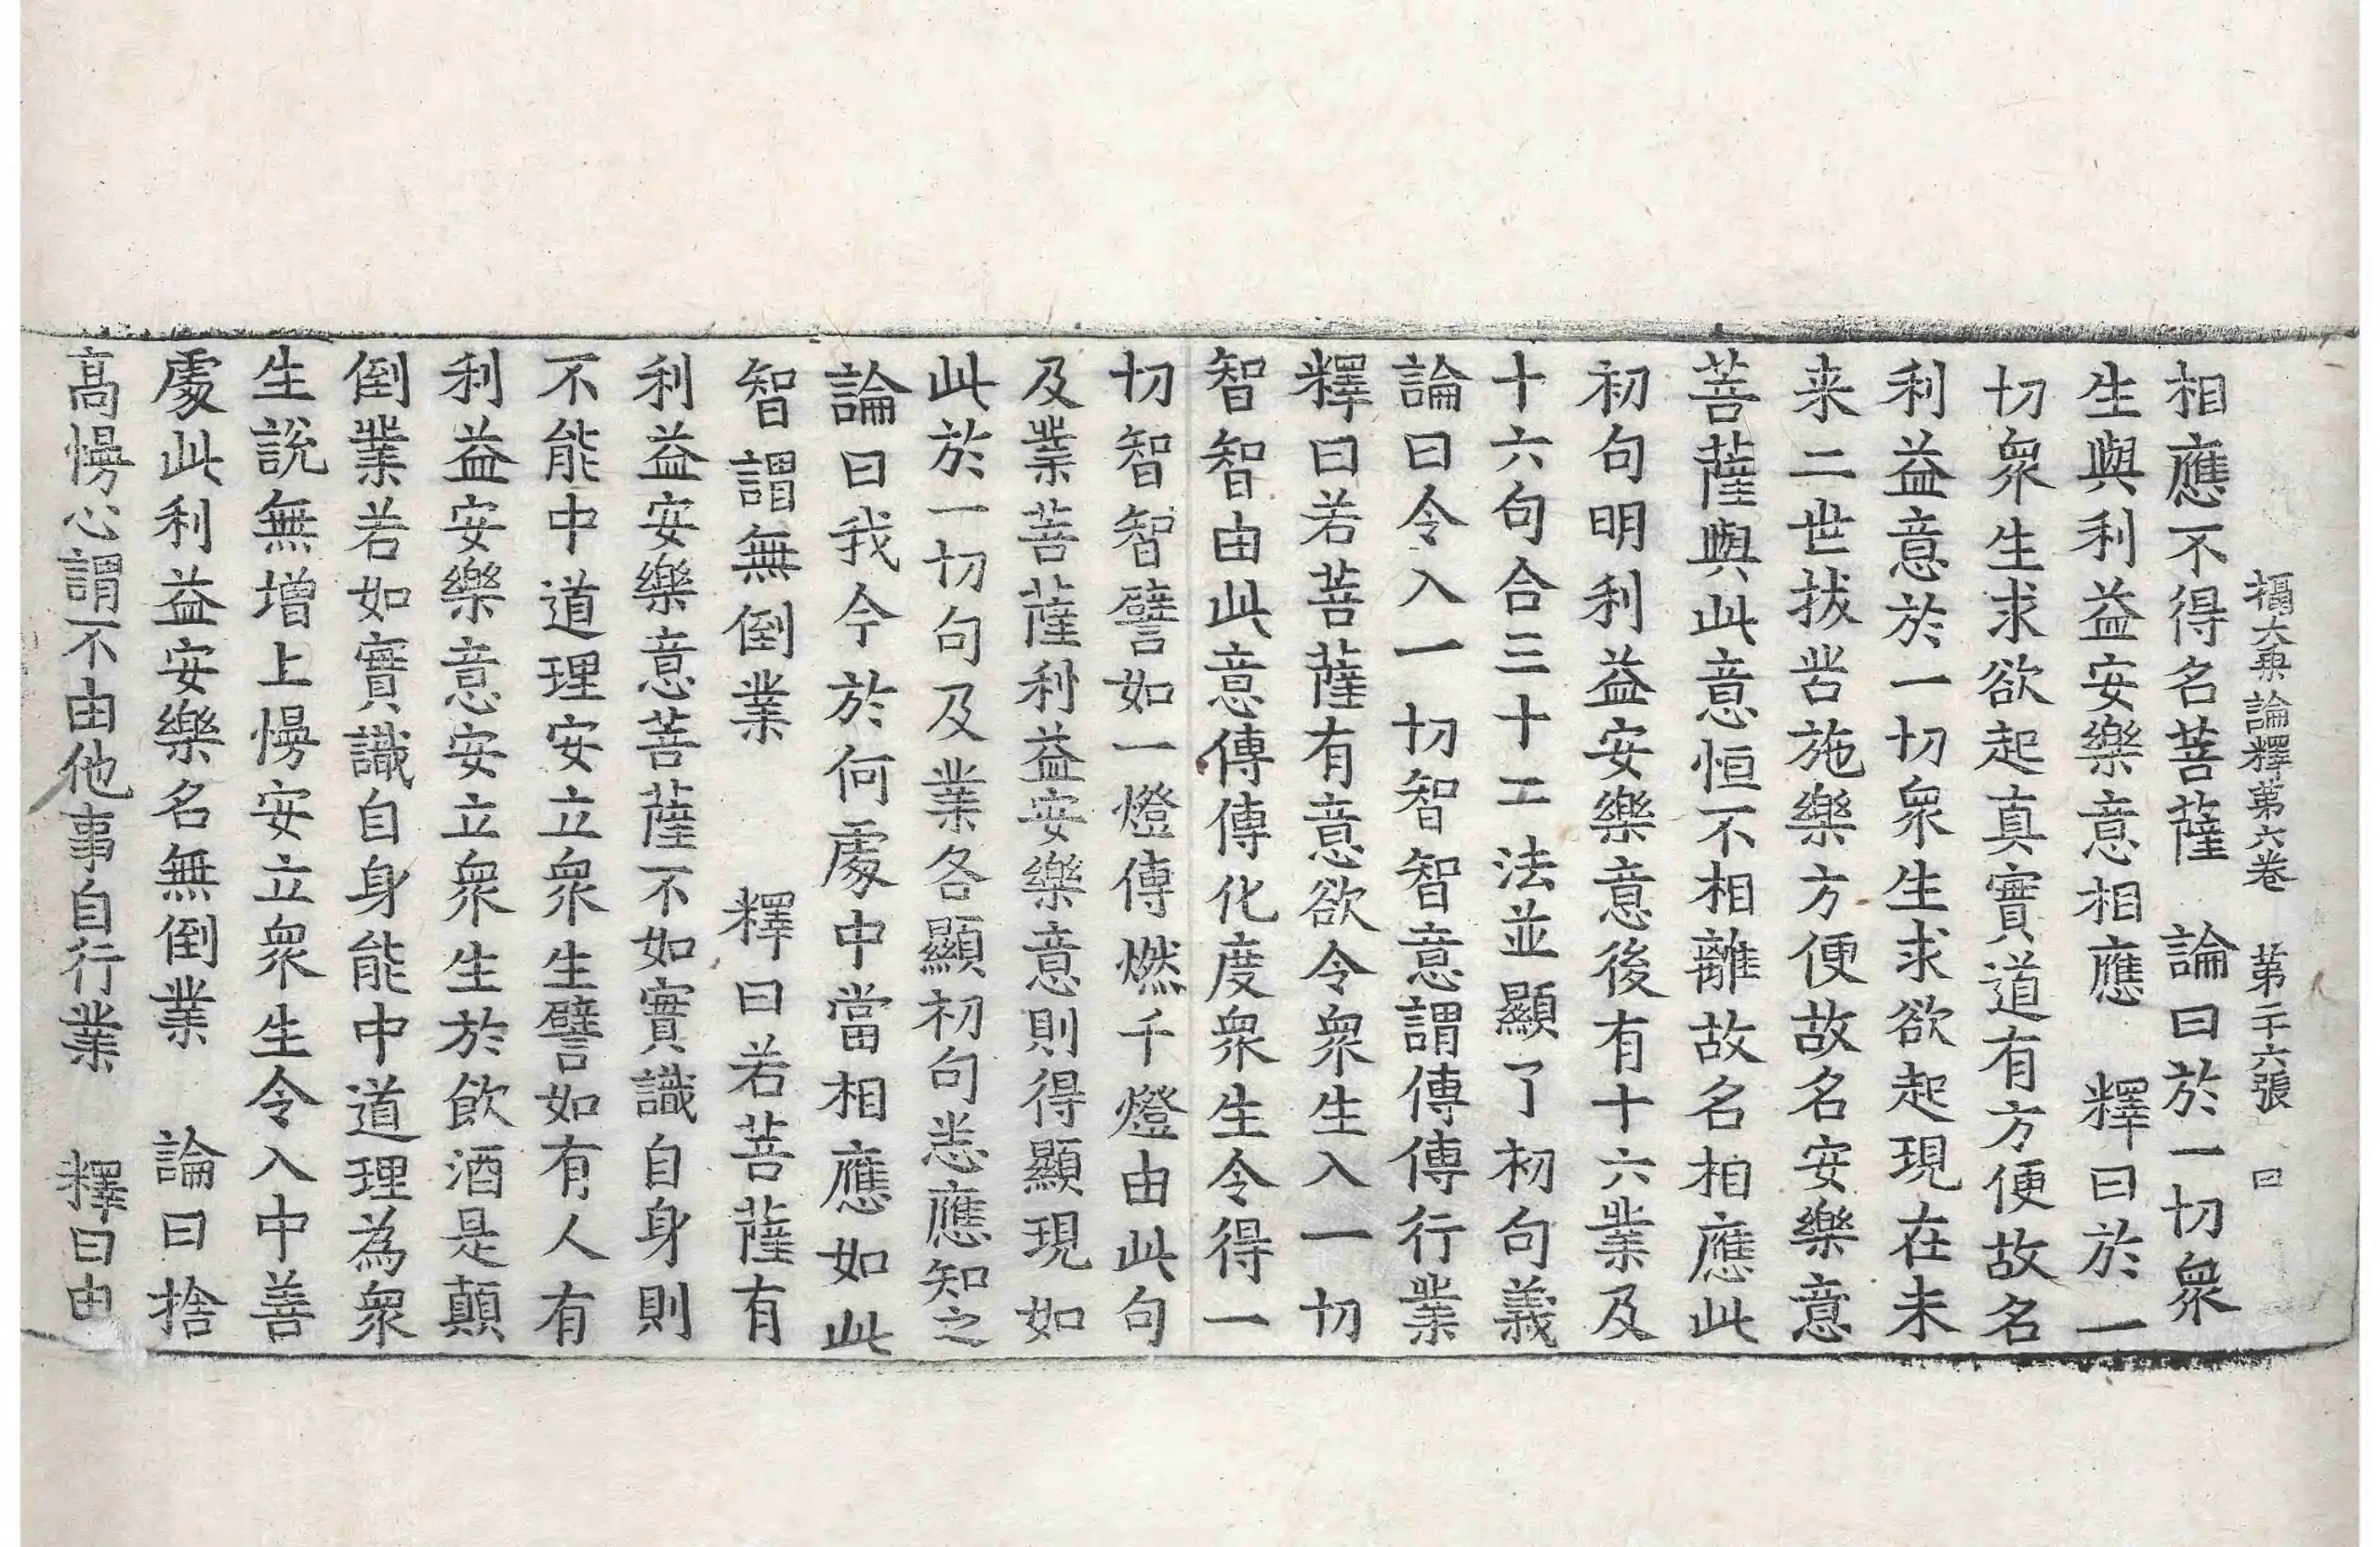 攝大乗論釋第六卷 第二十六張 曰
相應不得名菩薩 論曰於一切衆
生與利益安樂意相應 釋曰於一
切衆生求欲起真實道有方便故名
利益意於一切衆生求欲起現在未
来二世拔苦施樂方便故名安樂意
菩薩與此意恒不相離故名相應此
初句明利益安樂意後有十六業及
十六句合三十二法並顯了初句義
論曰令入一切智智意謂傳傳行業
釋曰若菩薩有意欲令衆生入一切
智智由此意傳傳化度衆生令得一
切智智譬如一燈傳燃千燈由此句
及業菩薩利益安樂意則得顯現如
此於一切句及業各顯初句悉應知之
論曰我今於何處中當相應如此
智謂無倒業 釋曰若菩薩有
利益安樂意菩薩不如實識自身則
不能中道理安立衆生譬如有人有
利益安樂意安立衆生於飲酒是顛
倒業若如實識自身能中道理為衆
生說無增上慢安立衆生令入中善
處此利益安樂名無倒業 論曰捨
高慢心謂不由他事自行業 釋曰由